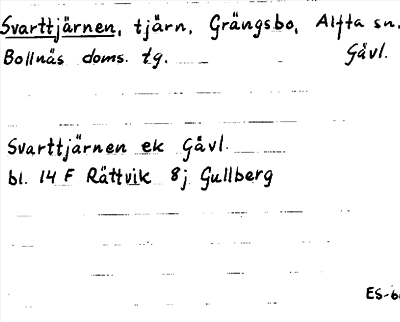 Svarttjärnen, tjärn, Grängsbo, Alfta sn.
Bollnäs doms. tg. Gävl.
Svarttjärnen ek Gävl.
bl. 14 F Rättvik 8j Gullberg